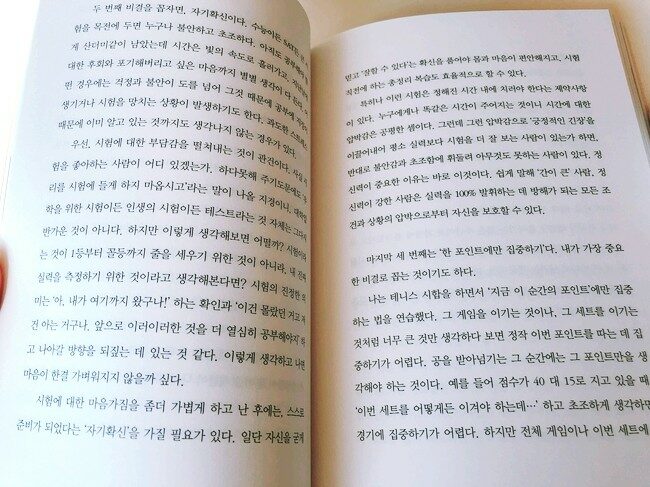 두 번째 비결을 꼽자면, 자기확신이다. 수능이든 SAT든 큰 시
험을 목전에 두면 누구나 불안하고 초조하다. 아직도 공부할
게 산더미같이 남았는데 시간은 빛의 속도로 흘러가고,
대한 후회와 포기해버리고 싶은 마음까지 별별 생각이 다
떤 경우에는 걱정과 불안이 도를 넘어 그것 때문에 공부에 지장이
생기거나 시험을 망치는 상황이 발생하기도 한다. 과도한 스트레스
때문에 이미 알고 있는 것까지도 생각나지 않는 경우가 있다.
우선, 시험에 대한 부담감을 떨쳐내는 것이 관건이다. 사실
험을 좋아하는 사람이 어디 있겠는가. 하다못해 주기도문에도
리를 시험에 들게 하지 마옵시고'라는 말이 나올 지경이니.
학을 위한 시험이든 인생의 시험이든 테스트라는 것 자체는 그다지
반가운 것이 아니다. 하지만 이렇게 생각해보면 어떨까? 시험이라
는 것이 1등부터 꼴등까지 줄을 세우기 위한 것이 아니라, 내 진짜
실력을 측정하기 위한 것이라고 생각해본다면? 시험의 진정한 의
미는 '아, 내가 여기까지 왔구나!' 하는 확인과 '이건 몰랐던 거고 저
건 아는 거구나. 앞으로 이러이러한 것을 더 열심히 공부해야지' 하
고 나아갈 방향을 되짚는 데 있는 것 같다. 이렇게 생각하고 나면
마음이 한결 가벼워지지 않을까 싶다.
시험에 대한 마음가짐을 좀더 가볍게 하고 난 후에는, 스스로
준비가 되었다는 '자기확신'을 가질 필요가 있다. 일단 자신을 굳게
믿고 '잘할 수 있다'는 확신을 품어야 몸과 마음이 편안해지고, 시험
직전에 하는 총정리 복습도 효율적으로 할 수 있다.
특히나 이런 시험은 정해진 시간 내에 치러야 한다는 제약사항
이 있다. 누구에게나 똑같은 시간이 주어지는 것이니 시간에 대한
압박감은 공평한 셈이다. 그런데 그런 압박감으로 '긍정적인 긴장'을
이끌어내어 평소 실력보다 시험을 더 잘 보는 사람이 있는가 하면,
반대로 불안감과 초조함에 휘둘려 아무것도 못하는 사람이 있다. 정
신력이 중요한 이유는 바로 이것이다. 쉽게 말해 '간이 큰' 사람, 정
신력이 강한 사람은 실력을 100% 발휘하는 데 방해가 되는 모든 조
건과 상황의 압박으로부터 자신을 보호할 수 있다.
마지막 세 번째는 '한 포인트에만 집중하기'다. 내가 가장 중요
한 비결로 꼽는 것이기도 하다.
나는 테니스 시합을 하면서 '지금 이 순간의 포인트'에만 집중
하는 법을 연습했다. 그 게임을 이기는 것이나, 그 세트를 이기는
것처럼 너무 큰 것만 생각하다 보면 정작 이번 포인트를 따는 데 집
중하기가 어렵다. 공을 받아넘기는 그 순간에는 그 포인트만을 생
각해야 하는 것이다. 예를 들어 점수가 40 대 15로 지고 있을 때
'이번 세트를 어떻게든 이겨야 하는데…' 하고 초조하게 생각하면
경기에 집중하기가 어렵다. 하지만 전체 게임이나 이번 세트에